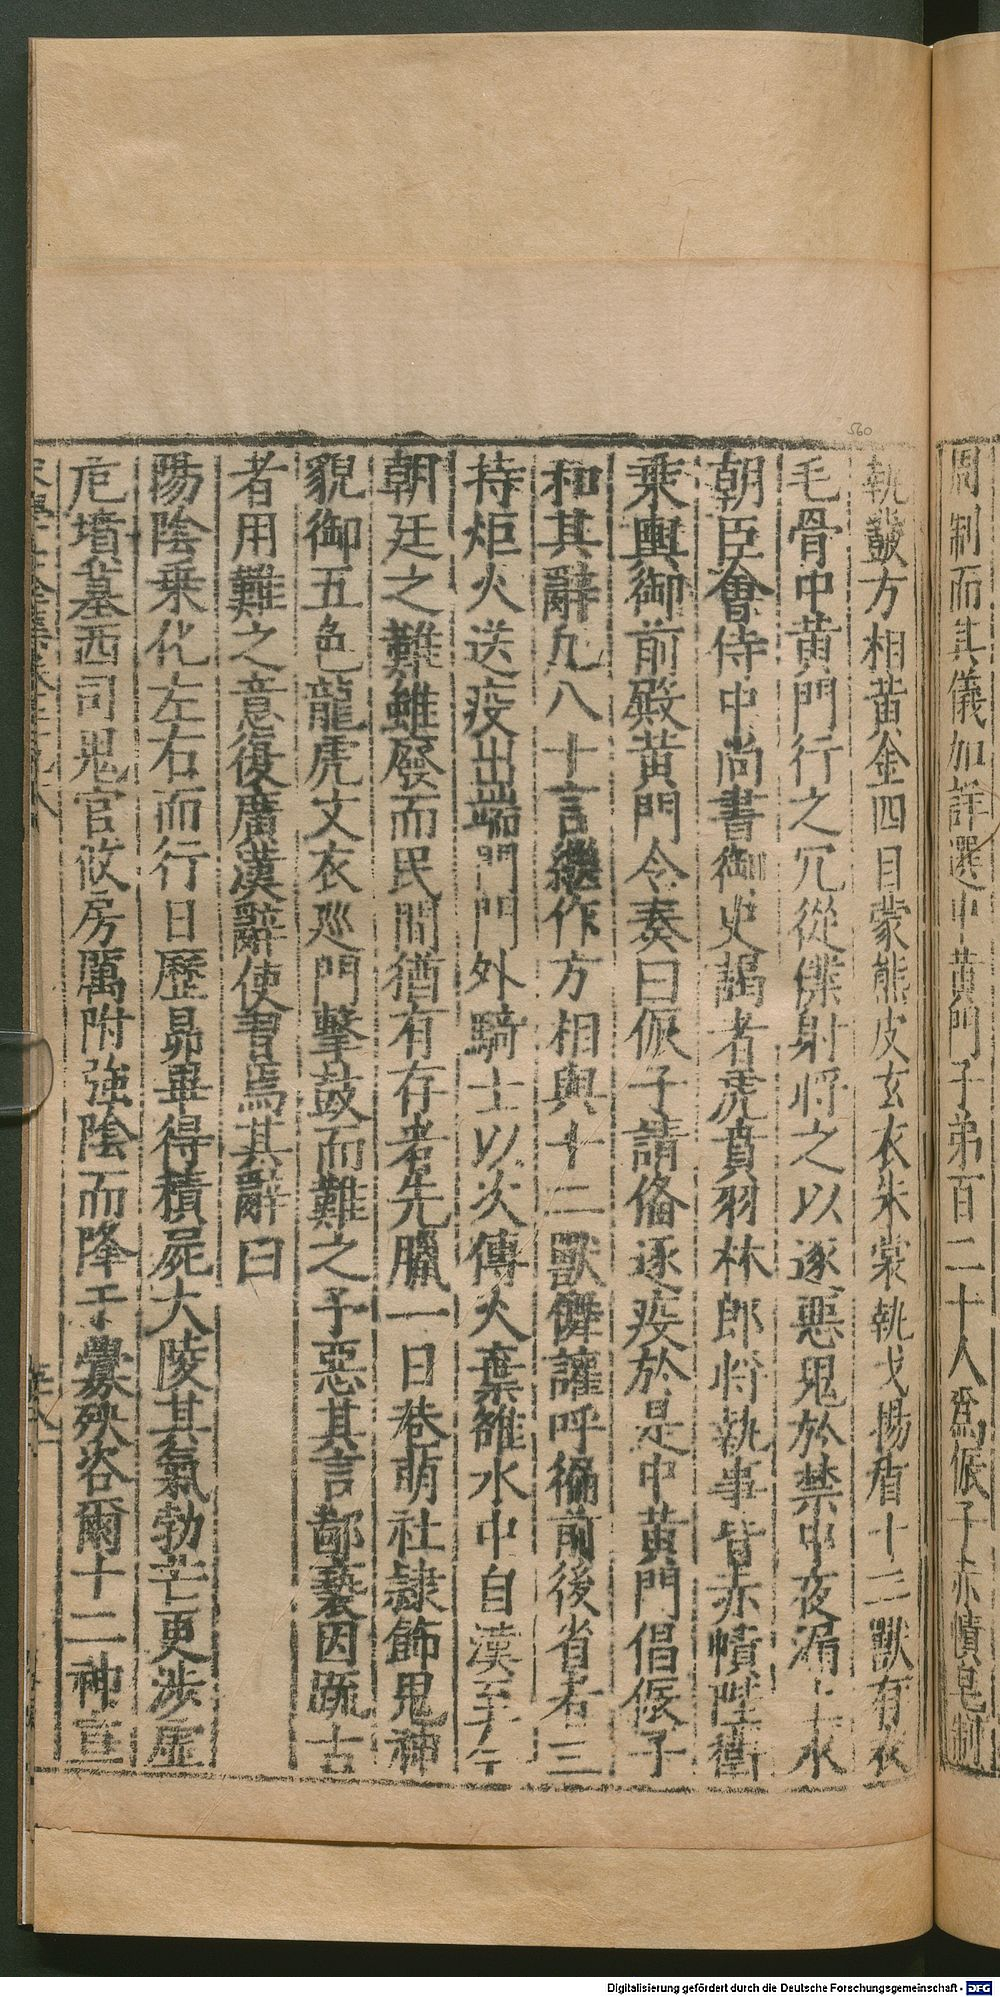 周制而其儀加詳選中黃門子弟百二十人爲侲子赤幘皂制
執鼗方相黃金四目蒙熊皮玄衣朱裳執戈揚盾十二獸有衣
毛骨中黃門行之冗從僕射將之以逐惡鬼於禁中夜漏上水
朝臣會侍中尚書御史謁者虎賁羽林郎將執事皆赤幘陛衛
乘輿御前殿黃門令奏曰侲子請俻逐疫於是中黃門倡侲子
和其辭九八十言繼作方相與十二獸儛讙呼徧前後省者三
持炬火送疫出端門門外騎士以次傳火棄雒水中自漢至今
朝廷之難雖廢而民間猶有存者先臘一日巷萌社隷飾鬼神
貌御五色龍虎文衣廵門擊鼓而難之予惡其言鄙䙝因䟽古
者用難之意復廣漢辭使習焉其辭曰
陽陰乘化左右而行日歷昴畢得積屍大陵其氣勃芒更涉虛
危墳墓西司鬼官攸房厲附強陰而降于釁殃咨爾十二神宜
560
Digitalisierung gefördert durch die Deutsche Forschungsgemeinschaft - DFG